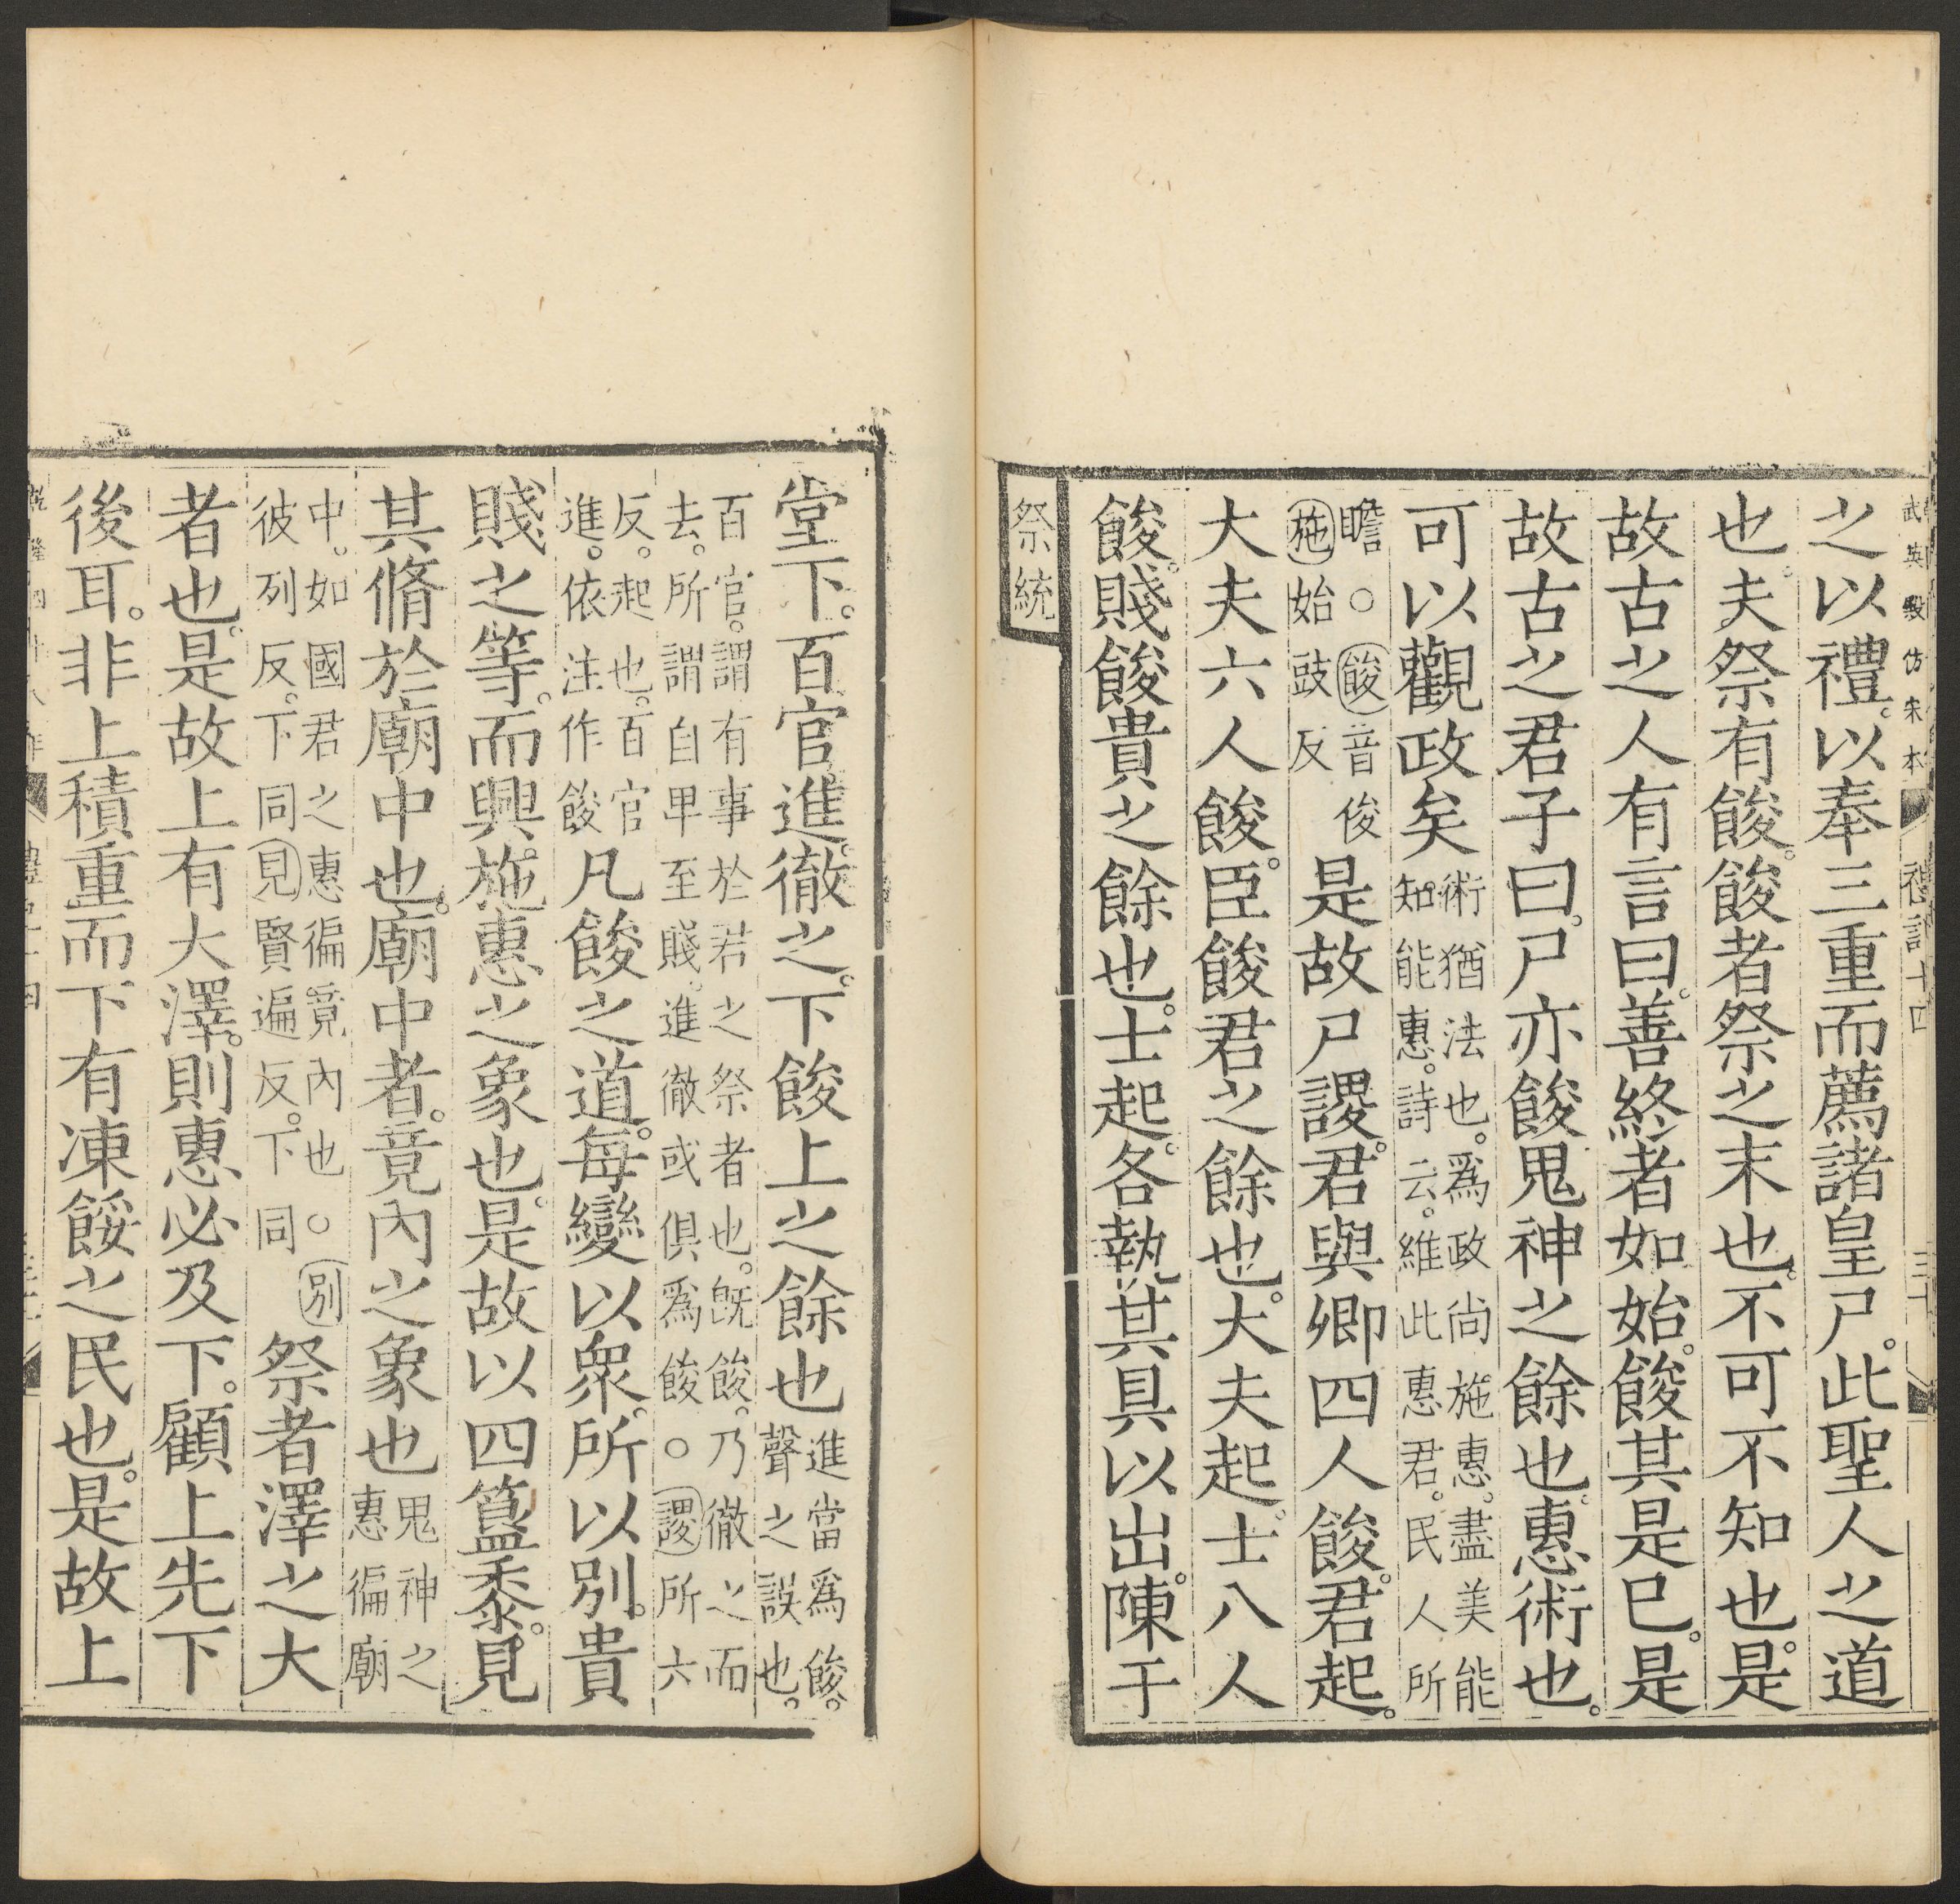 武英殿仿宋本
禮記十四
之以禮。以奉三重而薦諸皇尸。此聖人之道
也。夫祭有餕。餕者祭之末也。不可不知也。是
故古之人有言曰。善終者如始。餕其是已。是
故古之君子曰。尸亦餕鬼神之餘也。惠術也。
可以觀政矣術猶法也。爲政尚施惠。盡美能
知能惠。詩云。維此惠君。民人所
瞻○餕音俊
施始豉反是故尸謖。君與卿四人餕。君起。
大夫六人餕。臣餕君之餘也。大夫起。士八人
餕。賤餕貴之餘也。士起。各執其具以出。陳于
祭統
堂下。百官進。徹之。下餕上之餘也進當爲餕。
聲之誤也。
百官。謂有事於君之祭者也。旣餕。乃徹之而
去。所謂自卑至賤。進徹或俱爲餕○謖所六
反。起也。百官
進。依注作餕凡餕之道。每變以衆。所以別。貴
賤之等。而興。施惠之象也。是故以四簋黍。見
其脩於廟中也。廟中者。竟內之象也鬼神之
惠徧廟
中。如國君之惠徧竟內也○別
彼列反。下同見賢遍反。下同祭者澤之大
者也。是故上有大澤。則惠必及下。顧上先下
後耳。非上積重而下有凍餒之民也。是故上